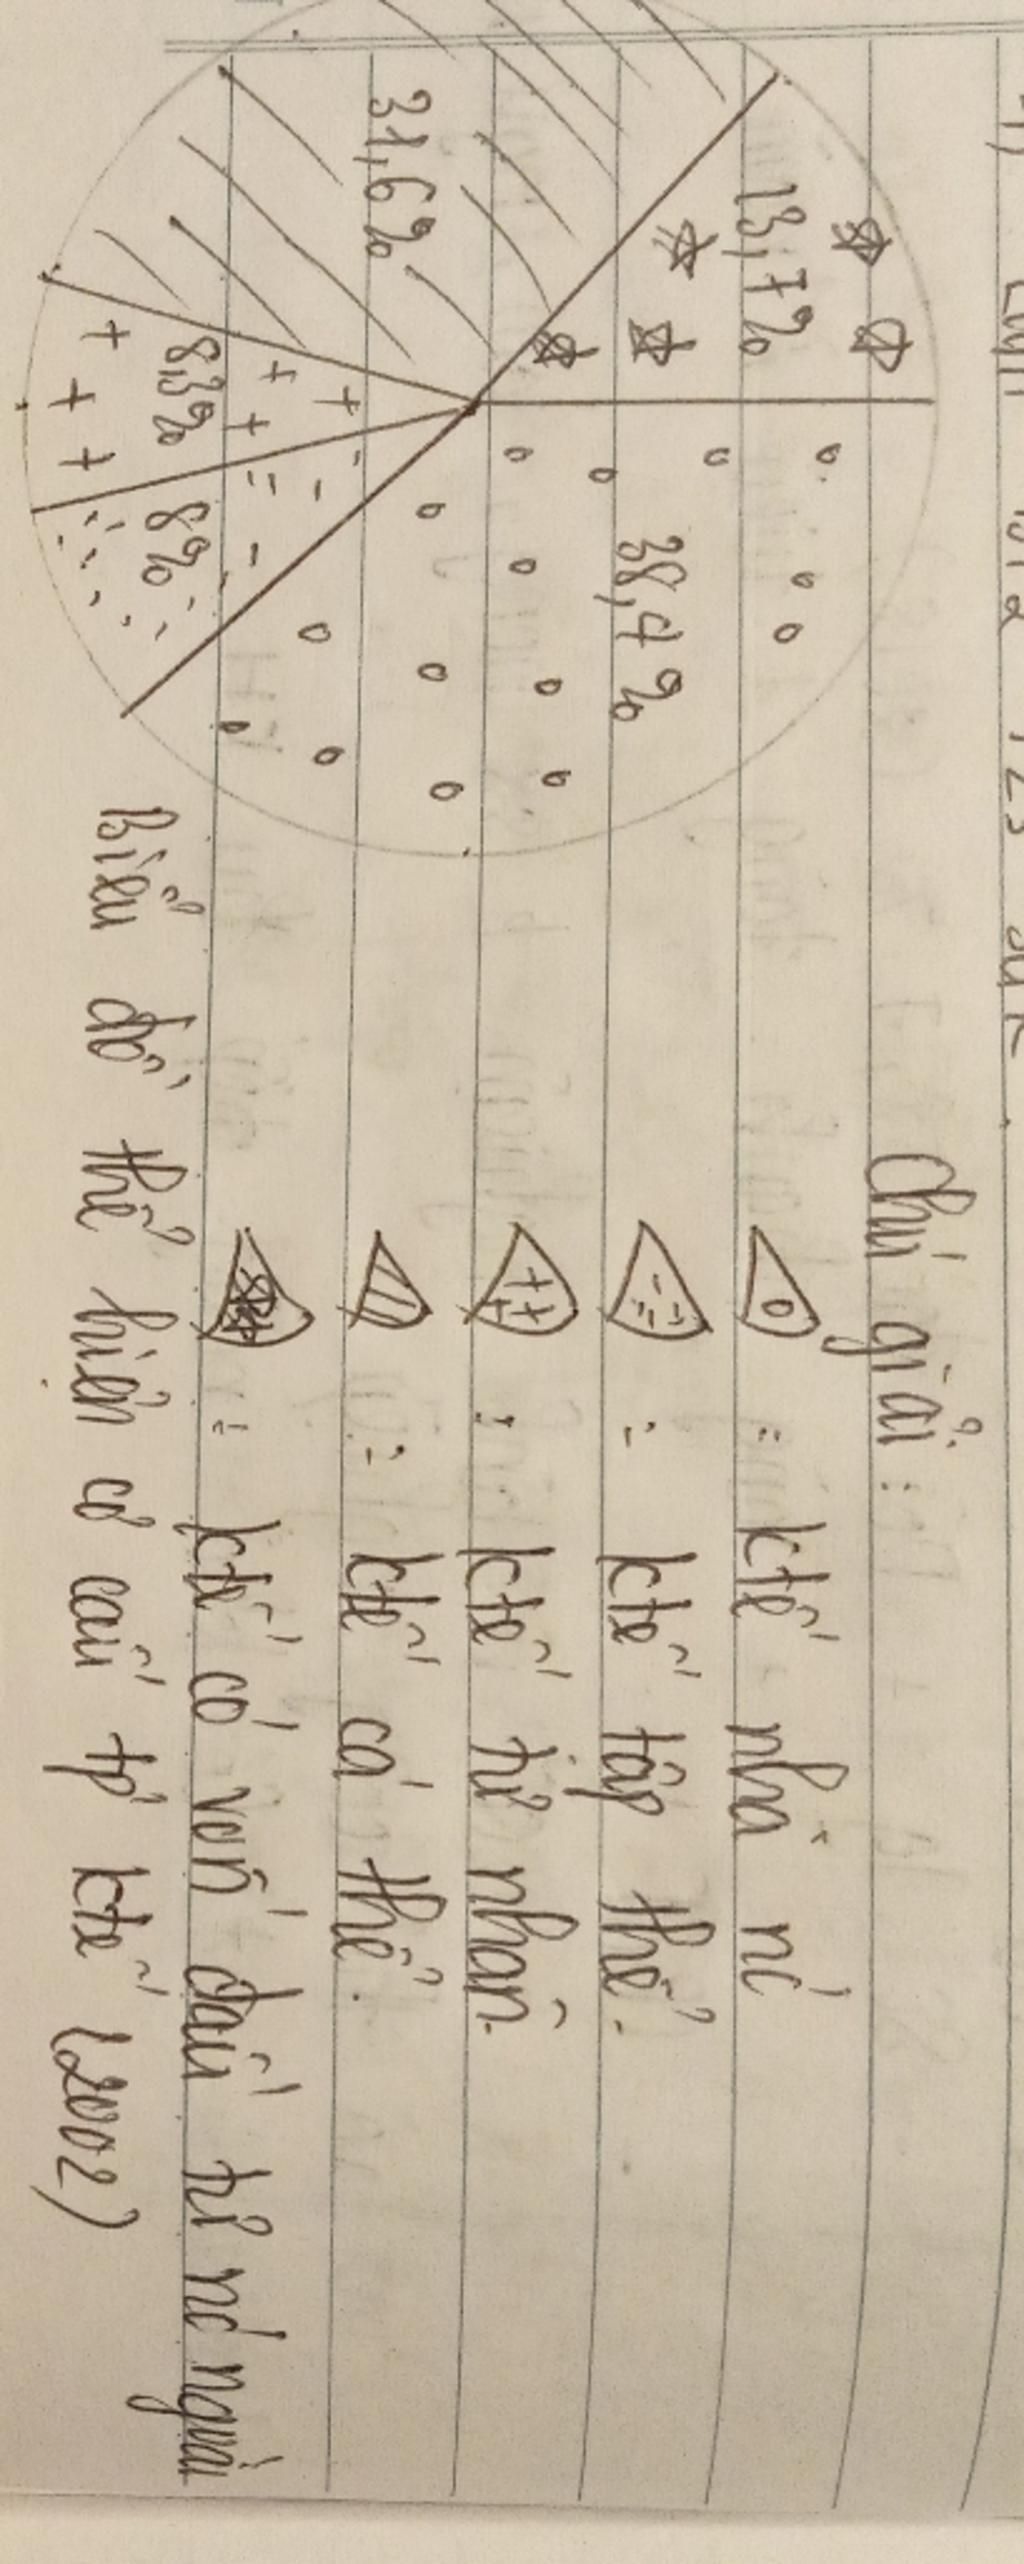 13,7%
31,6%
38,4%
8,3%
8%
Chú giải:
: ktế nhà nc
: ktế tập thể.
: ktế tư nhân.
: ktế cá thể.
: ktế có vốn đầu tư nc ngoài
Biểu đồ thể hiện cơ cấu tp ktế (2002)